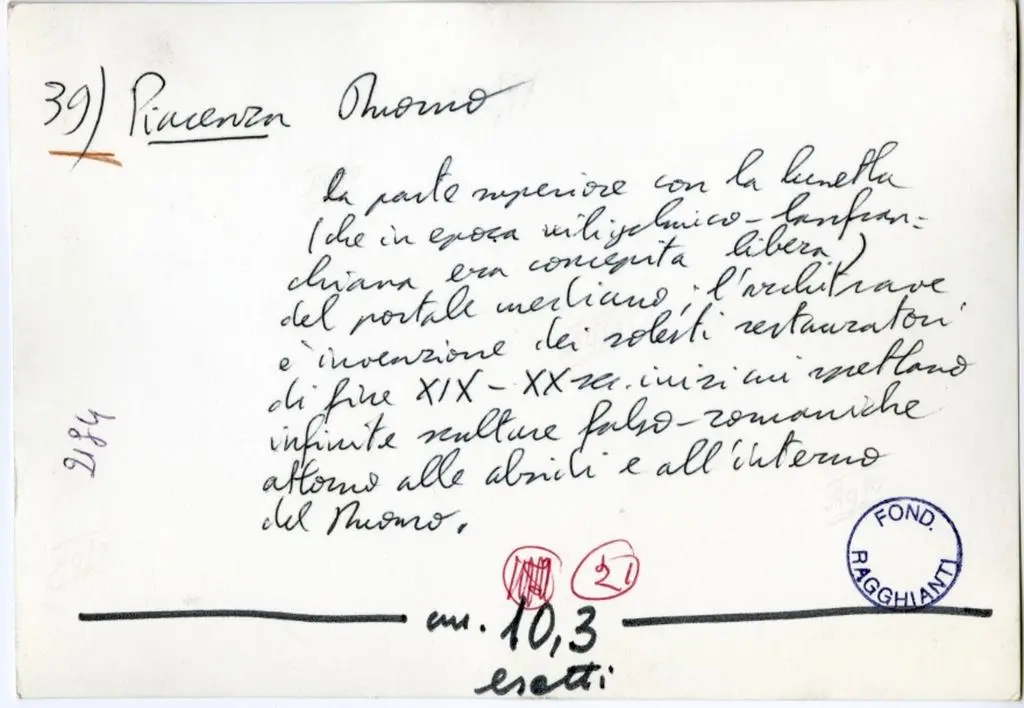 39) Piacenza Duomo
la parte superiore con la lunetta
(che in epoca wiligelmico-lanfran-
chiana era concepita libera)
del portale mediano; l'architrave
è invenzione dei solerti restauratori
di fine XIX - XX sec. inizi cui spettano
infinite sculture falso-romaniche
attorno alle absidi e all'interno
del Duomo.
2184
21
FOND. RAGGHIANTI
cm. 10,3
esatti